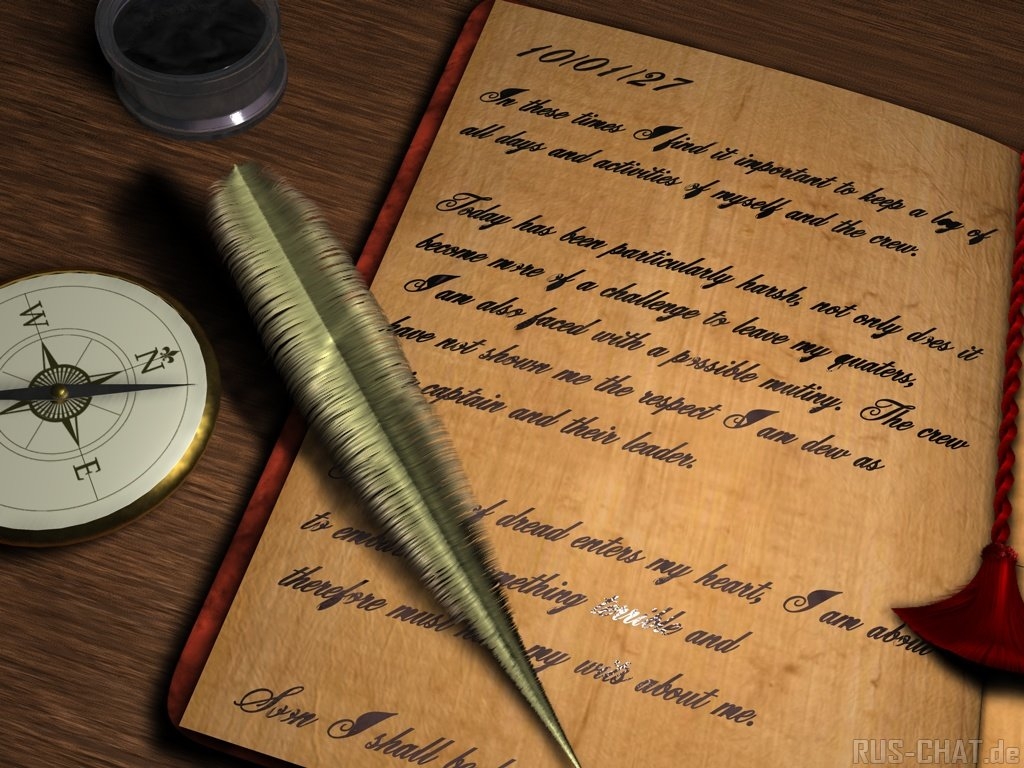 10/01/27
In these times I find it important to keep a log of
all days and activities of myself and the crew.
Today has been particularly harsh, not only does it
become more of a challenge to leave my quaters,
I am also faced with a possible mutiny. The crew
have not shown me the respect I am dew as
captain and their leader.
of dread enters my heart, I am about
to
terrible and
therefore must my wits about me.
Soon I shall be
RUS-CHAT.de
W
N
E